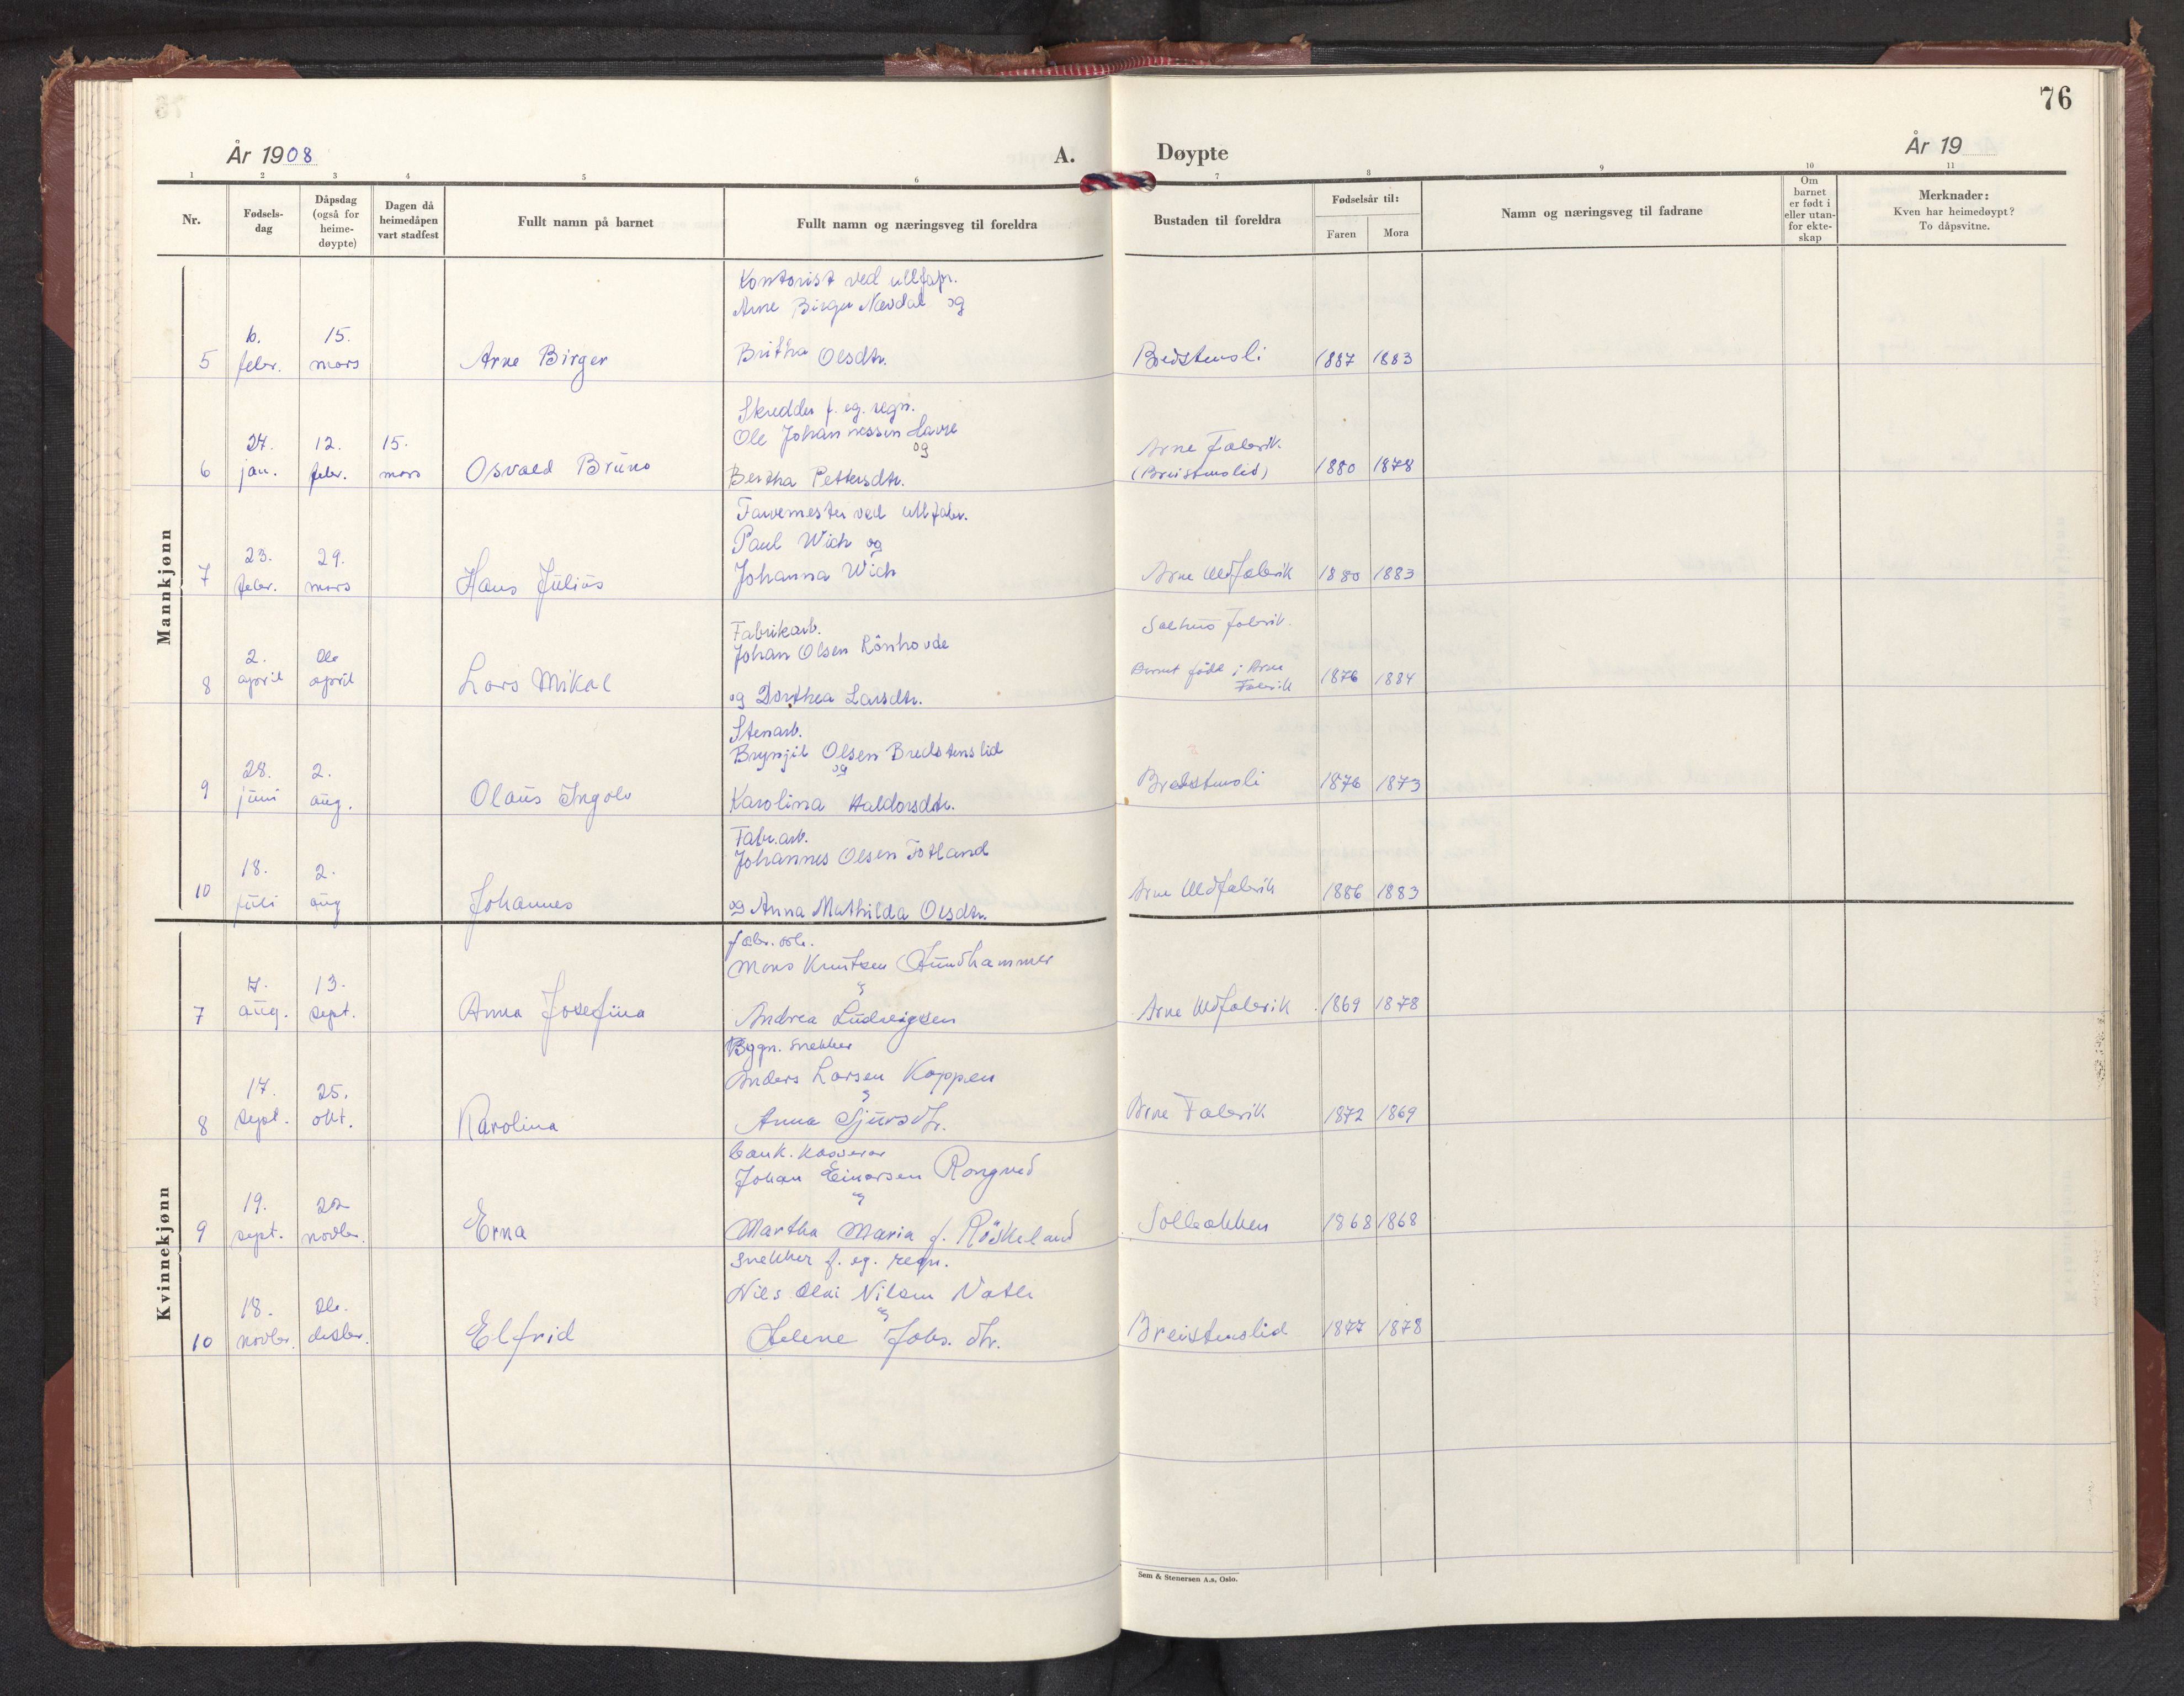 76
År 1908
A.
Døypte
År 19
1 2 3 4 5 6 7 8 9 10 11
Nr.
Fødsels-
dag
Dåpsdag
(også for
heime-
døypte)
Dagen då
heimedåpen
vart stadfest
Fullt namn på barnet
Fullt namn og næringsveg til foreldra
Bustaden til foreldra
Fødselsår til:
Faren Mora
Namn og næringsveg til fadrane
Om
barnet
er født i
eller utan-
for ekte-
skap
Merknader:
Kven har heimedøypt?
To dåpsvitne.
Mannkjønn
Kontorist ved ullfabr.
Arne Birger Nævdal og
6. 15.
5 febr. mars Arne Birger Britha Olsdtr. Breistensli 1887 1883
Skredder f. eg. regn.
Ole Johannessen
og
24. 12. 15. Arne Fabrik
6 jan. febr. mars Osvald Bruno Bertha Pettersdtr. (Breistenslid) 1880 1878
Farvemester ved ullfabr.
Paul Wich og
23. 29.
7 febr. mars Hans Julius Johanna Wich Arne Uldfabrik 1880 1883
Fabrikarb. Salhus Fabrik.
Johan Olsen Rönhovde
2. Barnet född i Arne
8 april april Lars Mikal og Dorthea Larsdtr. Fabrik 1876 1884
Stenarb.
Brynjil Olsen Bredstenslid
og
28. 2.
9 juni aug. Olaus Ingolv Karolina Haldorsdtr. Bredstensli 1876 1873
Fabr.arb.
Johannes Olsen Totland
18. 2.
10 juli aug Johannes og Anna Mathilda Olsdtr. Arne Uldfabrik 1886 1883
Kvinnekjønn
fabr. arb.
Mons Knutsen Hundhammer
7. 13.
7 aug. sept. Anna Josefina Andrea Ludvigsen Arne Uldfabrik 1869 1878
Bygn. snekker
Anders Larsen Koppen
17. 25.
8 sept. okt. Karolina Anna Sjursdtr. Arne Fabrik 1872 1869
bank. kasserar
Johan Einarsen Rongved
19. 22
9 sept. novbr. Erna Martha Maria f. Röskeland Solbakken 1868 1868
snekker f. eg. regn.
Nils Olai Nilsen
18.
10 novbr. desbr. Elfrid Helene Johs. dtr. Breistenslid 1877 1878
Sem & Stenersen A.s, Oslo.